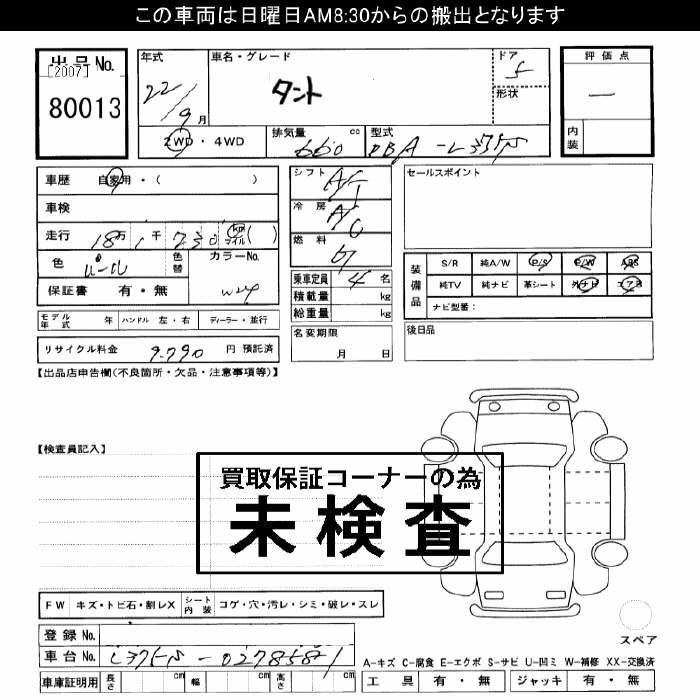 この車両は日曜日AM8:30からの搬出となります
出品No.
[2007]
80013
年式
22/9月
車名・グレード
タント
ドア
5
形状
評価点
—
内装
2WD・4WD
排気量
660
cc
型式
DBA-L375S
車歴
自家用・( )
車検
走行
18万1千230
km
マイル
( )
色
パール
色替
カラーNo.
W24
保証書
有・無
シフト
AT
冷房
AC
燃料
ガ
乗車定員
4名
積載量
kg
総重量
kg
名変期限
月 日
セールスポイント
装備品
S/R
純A/W
P/S
P/W
ABS
純TV
純ナビ
革シート
外ナビ
エアB
ナビ型番:
後日品
モデル年式
年
ハンドル
左・右
ディーラー・並行
リサイクル料金
9,790
円 預託済
【出品店申告欄(不良箇所・欠品・注意事項等)】
【検査員記入】
買取保証コーナーの為
未検査
FW
キズ・トビ石・割レX
シート内装
コゲ・穴・汚レ・シミ・破レ・スレ
スペア
登録No.
車台No.
L375S-0278587
A-キズ C-腐食 E-エクボ S-サビ U-凹ミ W-補修 XX-交換済
車庫証明用
長さ
cm
幅
cm
高さ
cm
工具
有・無
ジャッキ
有・無